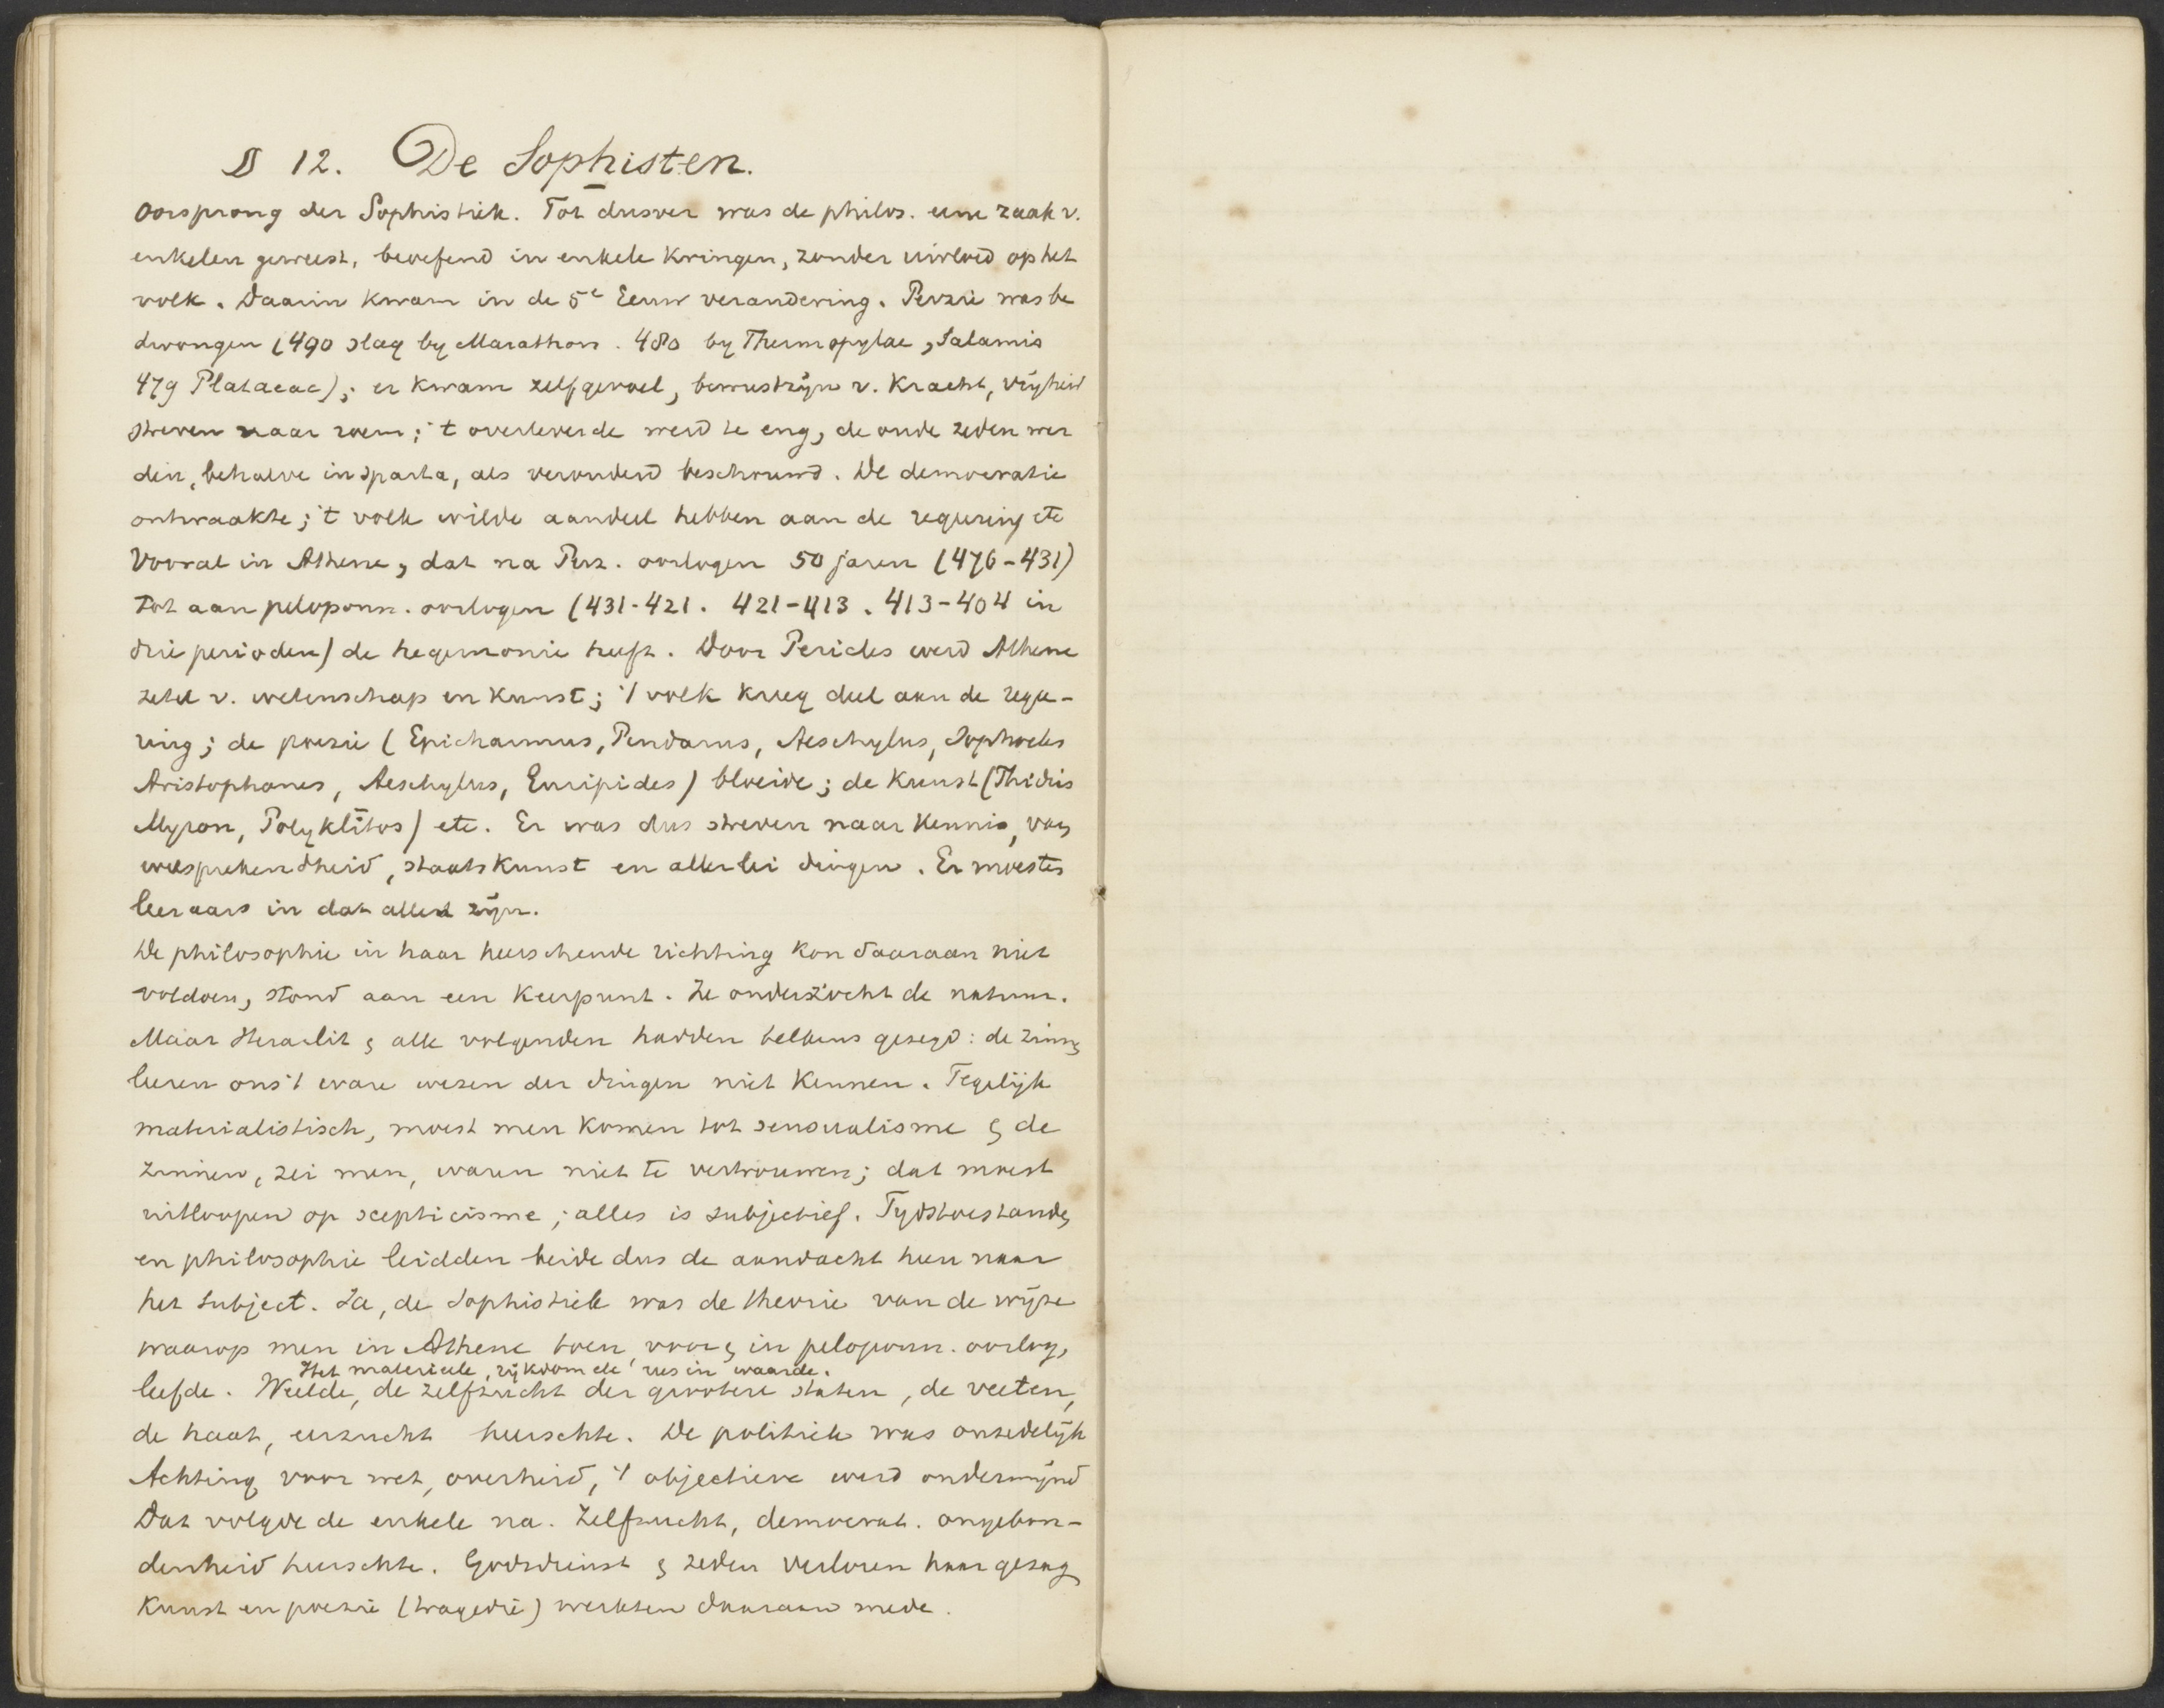 § 12. De Sophisten.
Oorsprong der Sophistiek. Tot dusver was de philos. eene zaak v.
enkelen geweest, beoefend in enkele kringen, zonder invloed op het
volk. Daarin kwam in de 5e Eeuw verandering. Perzie was be
dwongen (490 slag by Marathon. 480 by Thermopylae, Salamis
479 Plataeae); er kwam zelfgevoel, bewustzijn v. kracht, vrijheid
streven naar roem; 't overleverde werd te eng, de oude zeden wer
den, behalve in Sparta, als verouderd beschouwd. De democratie
ontwaakte; 't volk wilde aandeel hebben aan de regeering etc
Vooral in Athene, dat na Perz. oorlogen 50 jaren (476-431)
tot aan peloponn. oorlogen (431-421. 421-413. 413-404 in
drie perioden) de hegemonie heeft. Door Pericles werd Athene
zetel v. wetenschap en kunst; 't volk kreeg deel aan de regee-
ring; de poezie (Epicharmus, Pindarus, Aeschylus, Sophocles
Aristophanes, Aeschylus, Euripides) bloeide; de kunst (Phidias
Myron, Polyklitos) etc. Er was dus streven naar kennis, van
welsprekendheid, staatskunst en allerlei dingen. Er moesten
leeraars in dat alles zijn.
De philosophie in haar heerschende richting kon daaraan niet
voldoen, stond aan een keerpunt. Ze onderzocht de natuur.
Maar Heraclit & alle volgenden hadden telkens gezegd: de zinnen
leeren ons 't ware wezen der dingen niet kennen. Tegelijk
materialistisch, moest men komen tot sensualisme & de
zinnen, zei men, waren niet te vertrouwen; dat moest
uitloopen op scepticisme; alles is subjectief. Tydstoestanden
en philosophie leidden beide dus de aandacht heen naar
het subject. Ja, de Sophistiek was de theorie van de wijze
waarop men in Athene toen, voor & in peloponn. oorlog,
Het materieele, rijkdom etc rees in waarde.
leefde. Weelde, de zelfzucht der grootere staten, de veeten,
de haat, eerzucht heerschte. De politiek was onzedelijk
Achting voor wet, overheid, 't objectieve werd ondermijnd
Dat volgde de enkele na. Zelfzucht, democrat. ongebon-
denheid heerschte. Godsdienst & zeden verloren haar gezag
Kunst en poezie (tragedie) werkten daaraan mede.